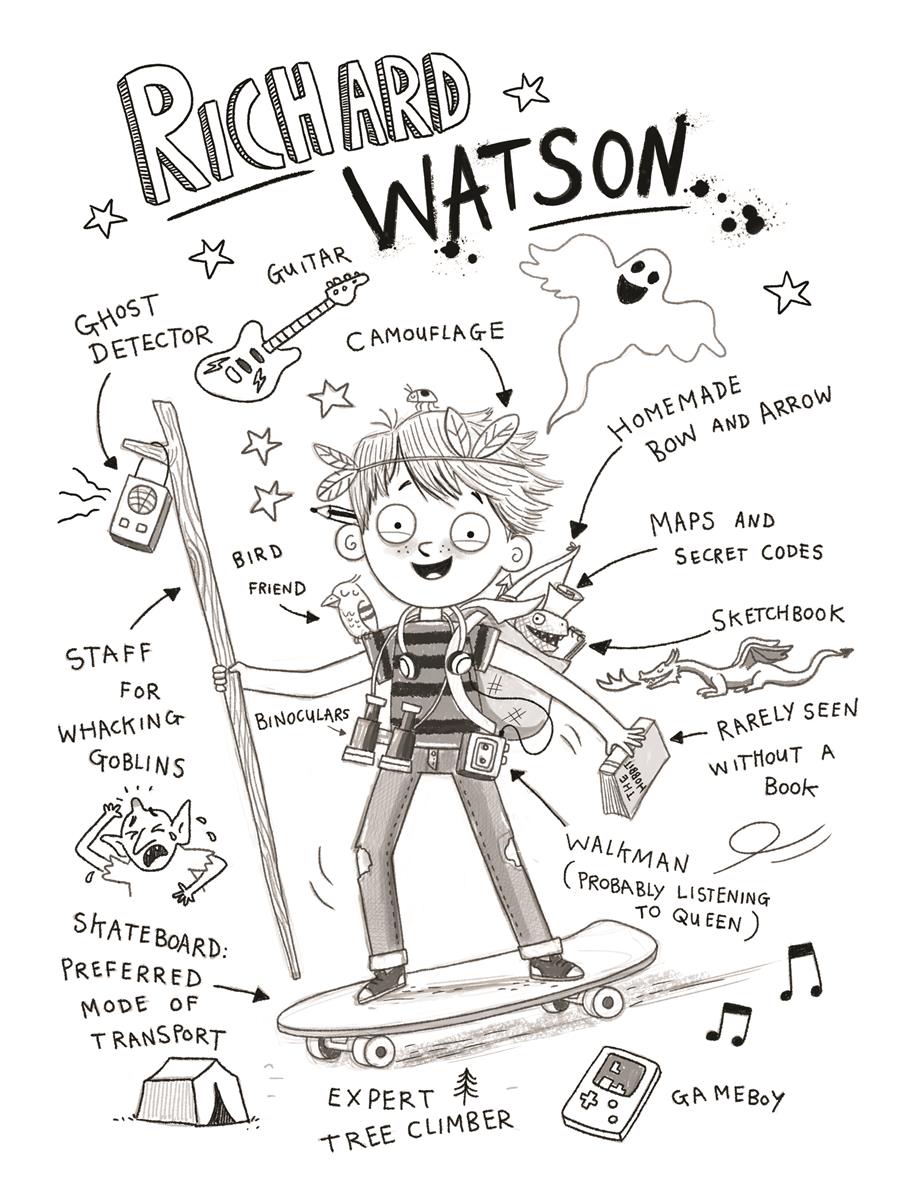 RICHARD
WATSON
GUITAR
GHOST
DETECTOR
CAMOUFLAGE
HOMEMADE
BOW AND ARROW
MAPS AND
SECRET CODES
BIRD
FRIEND
SKETCHBOOK
STAFF
FOR
WHACKING
GOBLINS
BINOCULARS
RARELY SEEN
WITHOUT A
BOOK
THE
HOBBIT
WALKMAN
(PROBABLY LISTENING
TO QUEEN)
SKATEBOARD:
PREFERRED
MODE OF
TRANSPORT
EXPERT
TREE CLIMBER
GAMEBOY